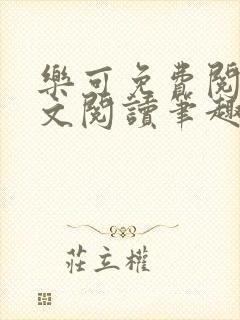 樂可免費閱
文閱讀筆趣
莊立權